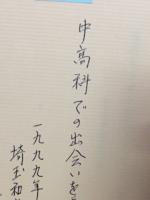 中高科での出会いを
一九九九年
埼玉